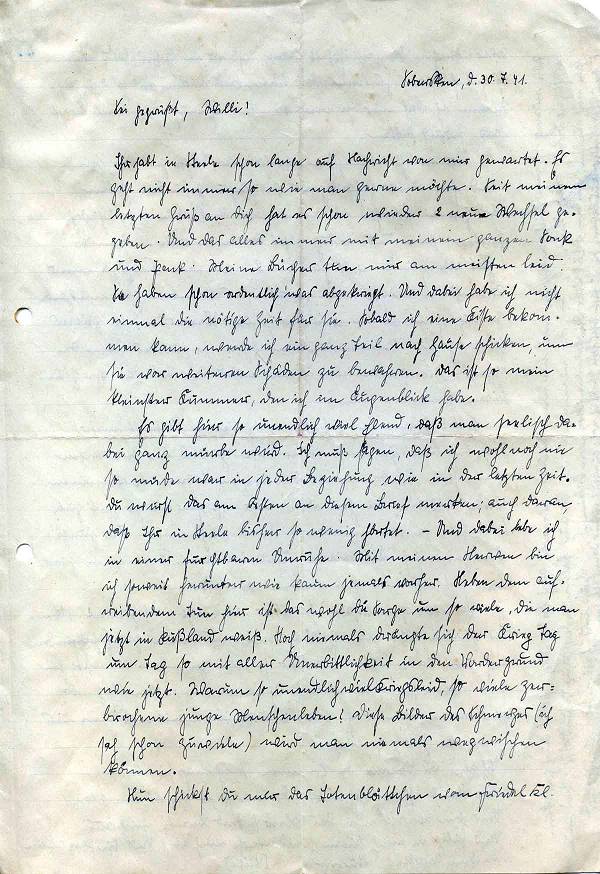 Sobernheim, d. 30.7.41.
Sei gegrüßt, Willi!
Ihr habt in Steele schon lange auf Nachricht von mir gewartet. Es
geht nicht immer so wie man gerne möchte. Seit meinem
letzten Gruß an Dich hat es schon wieder 2 neue Wechsel ge-
geben. Und das alles immer mit meinem ganzen Sack
und Pack. Meine Bücher tuen mir am meisten leid.
Sie haben schon ordentlich was abgekriegt. Und dabei habe ich nicht
einmal die nötige Zeit für sie. Sobald ich eine Kiste bekom-
men kann, werde ich ein ganz Teil nach Hause schicken, um
sie vor weiteren Schäden zu bewahren. Das ist so mein
kleinster Kummer, den ich im Augenblick habe.
Es gibt hier so unendlich viel Elend, daß man seelisch da-
bei ganz mürbe wird. Ich muß sagen, daß ich wohl noch nie
so müde war in jeder Beziehung wie in der letzten Zeit.
Du wirst das am besten an diesem Brief merken; auch daran,
daß Ihr in Steele bisher so wenig hörtet. – Und dabei lebe ich
in einer furchtbaren Unruhe. Mit meinen Nerven bin
ich soweit herunter wie kaum jemals vorher. Neben dem auf-
reibenden Tun hier ist das wohl die Sorge um so viele, die man
jetzt in Rußland weiß. Noch niemals drängte sich der Krieg Tag
um Tag so mit aller Unerbittlichkeit in den Vordergrund
wie jetzt. Warum so unendlich viel Kriegsleid, so viele zer-
brochene junge Menschenleben! Diese Bilder des Schmerzes (ich
sah schon zuviele) wird man niemals wegwischen
können.
Nun schickst Du mir das Totenblättchen vom Friedel Kl.